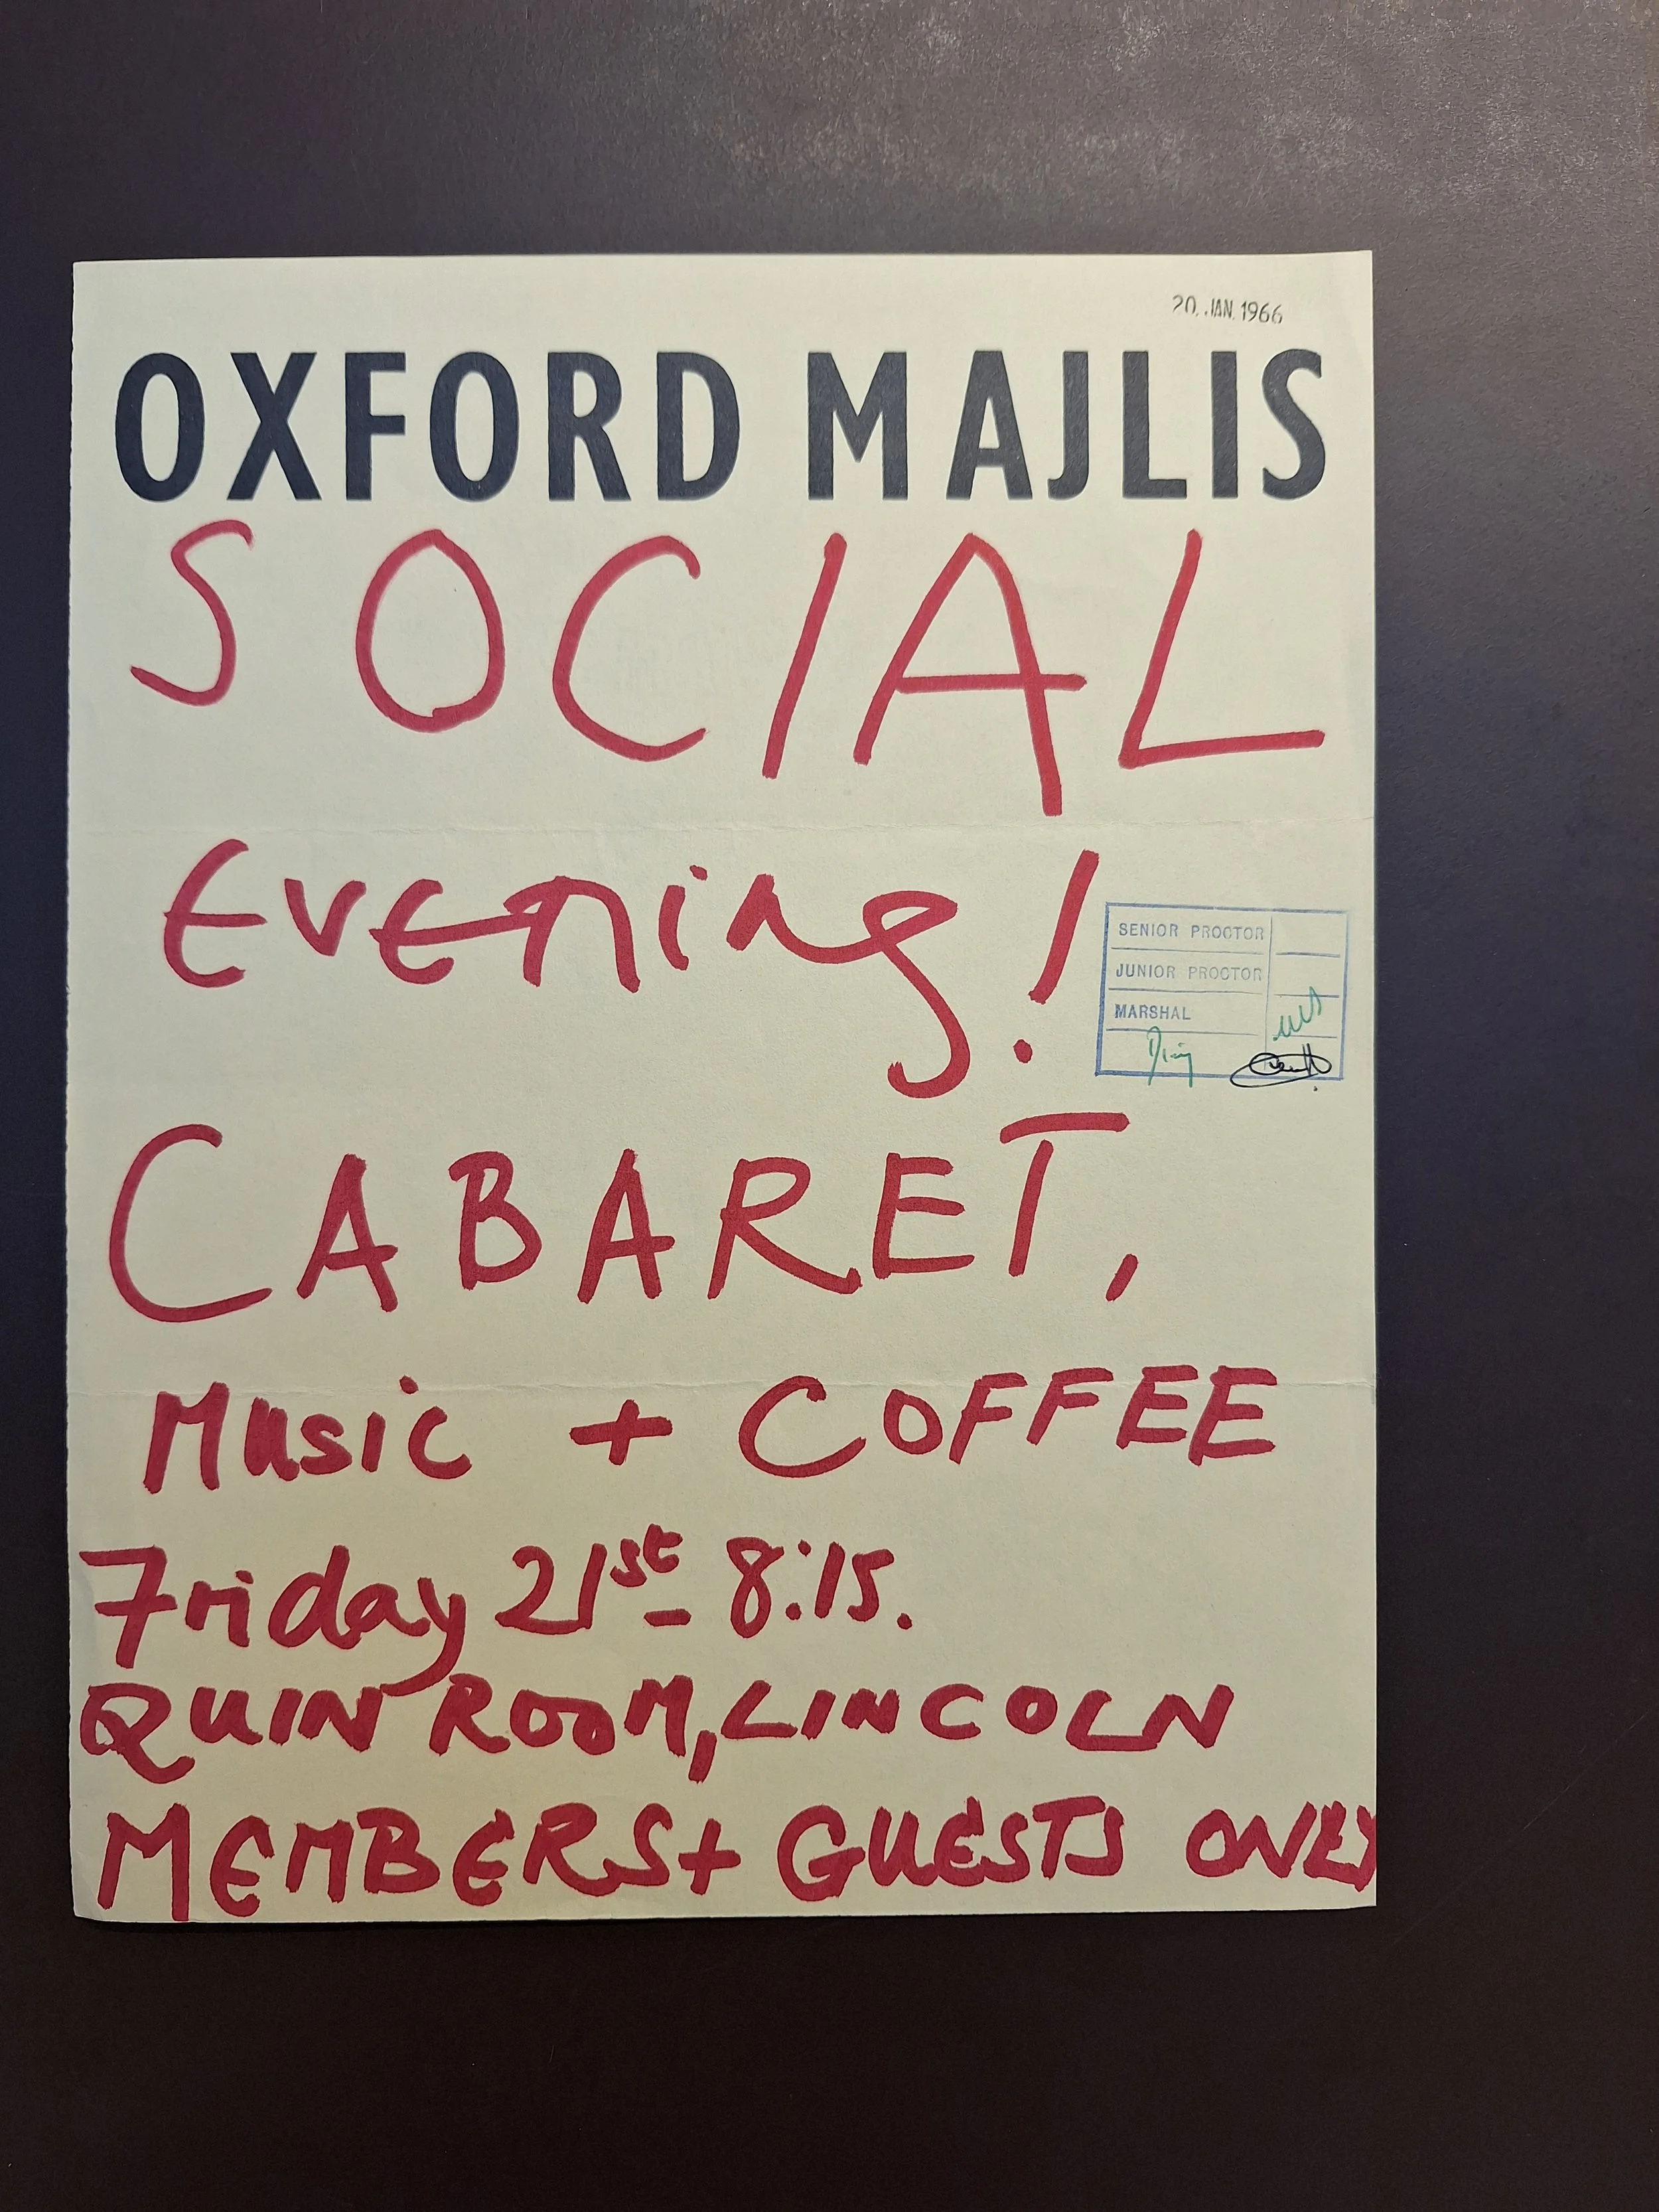 20. JAN. 1966
OXFORD MAJLIS
SOCIAL
Evening!
SENIOR PROCTOR
JUNIOR PROCTOR
MARSHAL
CABARET,
Music + COFFEE
Friday 21st - 8:15.
QUIN ROOM, LINCOLN
MEMBERS + GUESTS ONLY